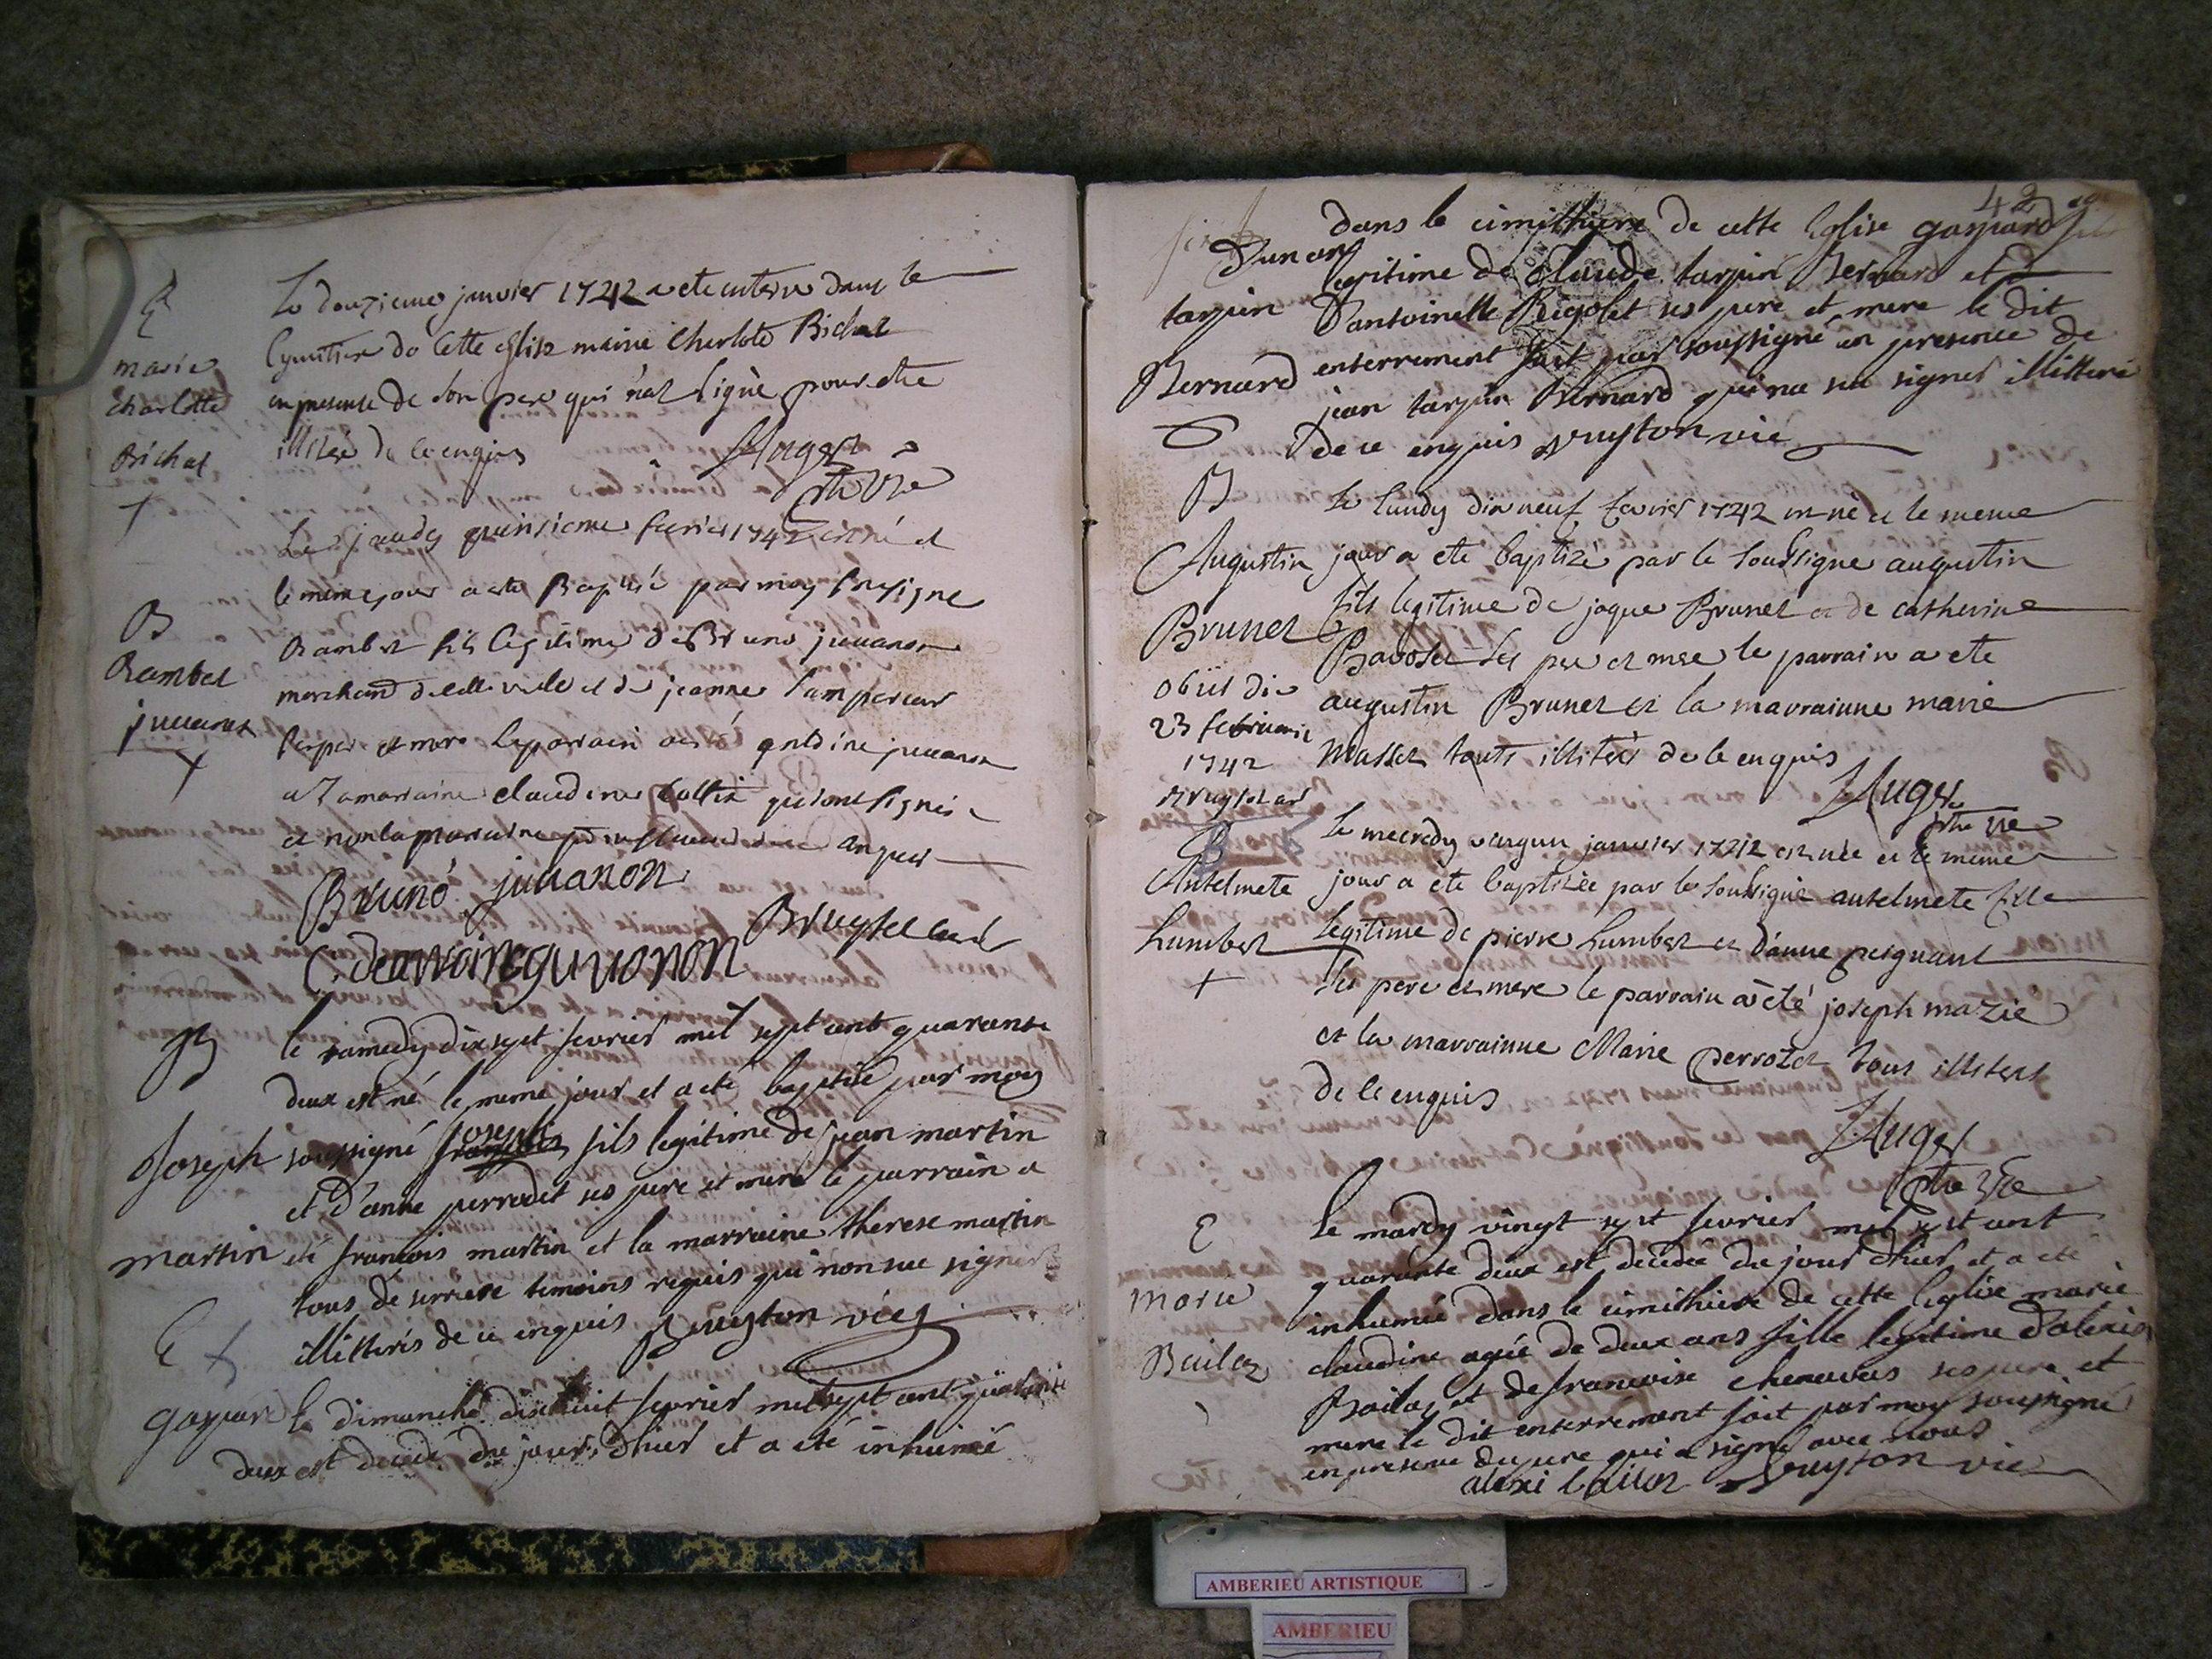 E
marie
charlotte
Bichat
+
Le douzieme janvier 1742 a ete enterré dans le
Cymitiere de Cette eglise marie Charlote Bichat
en presence de son pere qui n'at signé pour etre
illiteré de ce enquis
Auger
ptre Vre
B
Rambet
juuanon
+
Le jeudy quinsieme fevrier 1742 est né et
le meme jour a ete Baptisé par moy soussigne
Rambet fils legitime de Bruno juuanon
marchand de cette ville et de jeanne Lampereur
ses pere et mere le parrain a esté antoine juuanon
et la marraine claudine qui ont signés
et non la maraine enquis
Bruno juuanon
Bruyset
B
Joseph
martin
le samedy dix sept fevrier mil sept cent quarante
deux est né le meme jour et a eté baptisé par moy
soussigné joseph fils legitime de jean martin
et d'anne perrodet ses pere et mere le parrain a
eté francois martin et la marraine therese martin
tous de temoins requis qui non sue signer
illitterés de ce enquis Bruyson vic
E
+
gaspard
le dimanche dixhuit fevrier mil sept cent quarante
deux est decede du jour d'hier et a eté inhumé
42
dans le cimithiere de cette Eglise gaspard fils
tarpin
Bernard
legitime de Claude tarpin Bernard et
D'antoinette Rigolet ses pere et mere le dit
enterrement fait par soussigné en presence de
jean tarpin Bernard qui na sue signer illitteré
de ce enquis Bruyson vic
B
Augustin
Brunet
obiit die
23 februarii
1742
Le lundy dix neuf fevrier 1742 est né et le meme
jour a ete baptizé par le soussigne augustin
fils legitime de jaque Brunet et de catherine
Bavoset ses pere et mere le parrain a ete
augustin Brunet et la marrainne marie
Masset touts illiterés de ce enquis
Auger
ptre vre
B
Antelmete
humbert
+
Le mecredy vingun janvier 1742 est née et le meme
jour a ete baptizée par le soussigné antelmete fille
legitime de pierre humbert et d'anne peignant
ses pere et mere le parrain a eté joseph mazié
et la marrainne Marie perrozet tous illiterés
de ce enquis
Auger
ptre vre
E
marie
Bailoz
Le mardy vingt sept fevrier mil sept cent
quarante deux est decedée du jour d'hier et a eté
inhumée dans le cimithiere de cette Eglise marie
claudine agée de deux ans fille legitime d'alexis
Bailoz et de francoise chenavas ses pere et
mere le dit enterrement fait par moy soussigné
en presence du pere qui a signé avec nous
alexi bailoz Bruyson vic
AMBERIEU ARTISTIQUE
AMBERIEU